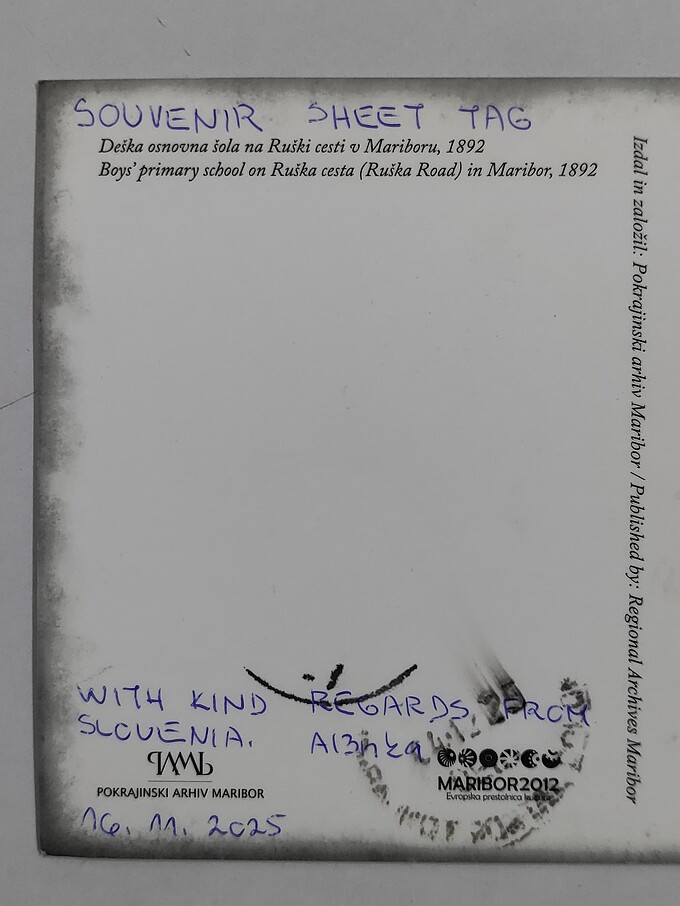 SOUVENIR SHEET TAG
Deška osnovna šola na Ruški cesti v Mariboru, 1892
Boys' primary school on Ruška cesta (Ruška Road) in Maribor, 1892
Izdal in založil: Pokrajinski arhiv Maribor / Published by: Regional Archives Maribor
WITH KIND REGARDS FROM
SLOVENIA.
POKRAJINSKI ARHIV MARIBOR
MARIBOR2012
Evropska prestolnica kulture
16. 11. 2025